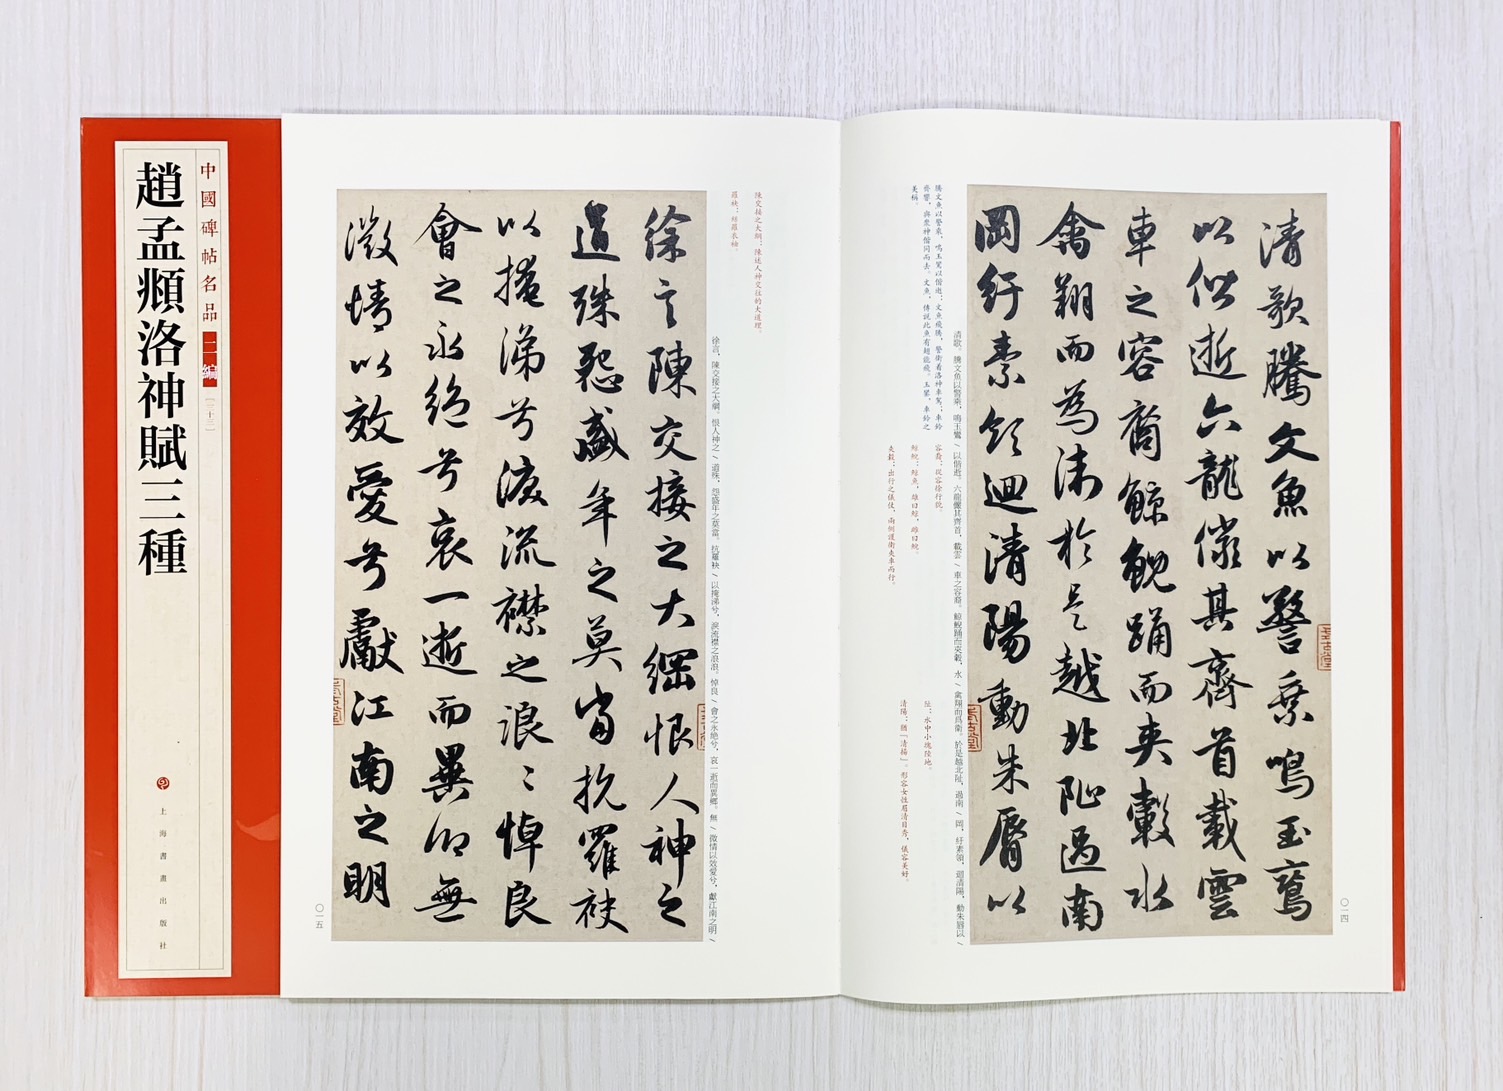 中國碑帖名品二編[三十三]
趙孟頫洛神賦三種
上海書畫出版社
清歌騰文魚以警乘鳴玉鸞
以偕逝六龍儼其齊首載雲
車之容裔鯨鯢踊而夾轂水
禽翔而為衛於是越北沚過南
岡紆素領迴清陽動朱脣以
清歌。騰文魚以警乘，鳴玉鸞／以偕逝。六龍儼其齊首，載雲／車之容裔。鯨鯢踊而夾轂，水／禽翔而爲衛。於是越北沚，過南／岡，紆素領，迴清陽，動朱唇以／
騰文魚以警乘，鳴玉鸞以偕逝：文魚飛騰，警衛着洛神車駕；車鈴
齊響，與眾神偕同而去。文魚，傳說此魚有翅能飛。玉鸞，車鈴之
美稱。
容裔：從容徐行貌。
鯨鯢：鯨魚，雄曰鯨，雌曰鯢。
夾轂：出行之儀仗，兩側護衛夾車而行。
沚：水中小塊陸地。
清陽：猶「清揚」。形容女性眉清目秀，儀容美好。
〇一四
陳交接之大綱：陳述人神交往的大道理。
羅袂：絲羅衣袖。
徐言，陳交接之大綱。恨人神之／道殊，怨盛年之莫當。抗羅袂／以掩涕兮，淚流襟之浪浪。悼良／會之永絕兮，哀一逝而異鄉。無／微情以效愛兮，獻江南之明／
徐言陳交接之大綱恨人神之
道殊怨盛年之莫當抗羅袂
以掩涕兮淚流襟之浪〻悼良
會之永絕兮哀一逝而異鄉無
微情以效愛兮獻江南之明
〇一五